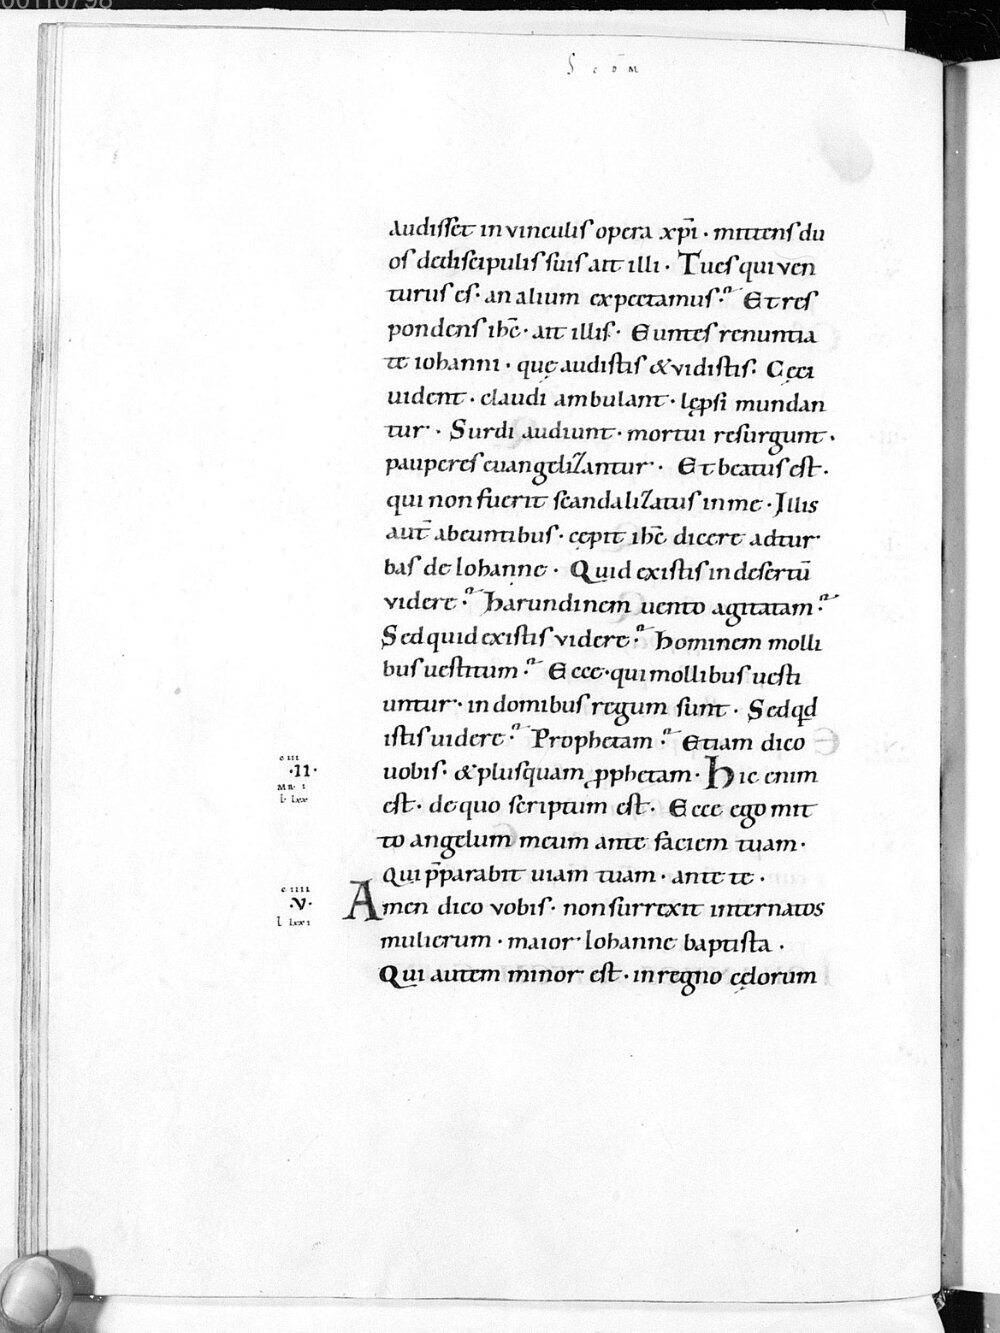 00110798
S c̄D̄M
audisset in vinculis opera xp̄i · mittens du
os de discipulis suis ait illi · Tu es qui ven
turus es · an alium expectamus? Et res
pondens ih̄c · ait illis · Euntes renuntia
te iohanni · quę audistis & vidistis · Cęci
uident · claudi ambulant · lępsi mundan
tur · Surdi audiunt · mortui resurgunt ·
pauperes euangelizantur · Et beatus est ·
qui non fuerit scandalizatus in me · Illis
aut̄ abeuntibus · cępit ih̄c dicere ad tur
bas de Iohanne · Quid existis in desertū
videre? harundinem uento agitatam?
Sed quid existis videre? hominem molli
bus uestitum? Ecce · qui mollibus uesti
untur · in domibus regum sunt · Sed qd
istis uidere? Prophetam? Etiam dico
uobis · & plusquam ꝓphetam · Hic enim
c III
· II ·
MR · I
L · LXX
est · de quo scriptum est · Ecce ego mit
to angelum meum ante faciem tuam ·
Qui p̄parabit uiam tuam · ante te ·
c IIII
· V ·
L LXXI
Amen dico vobis · non surrexit inter natos
mulierum · maior Iohanne baptista ·
Qui autem minor est · in regno cęlorum